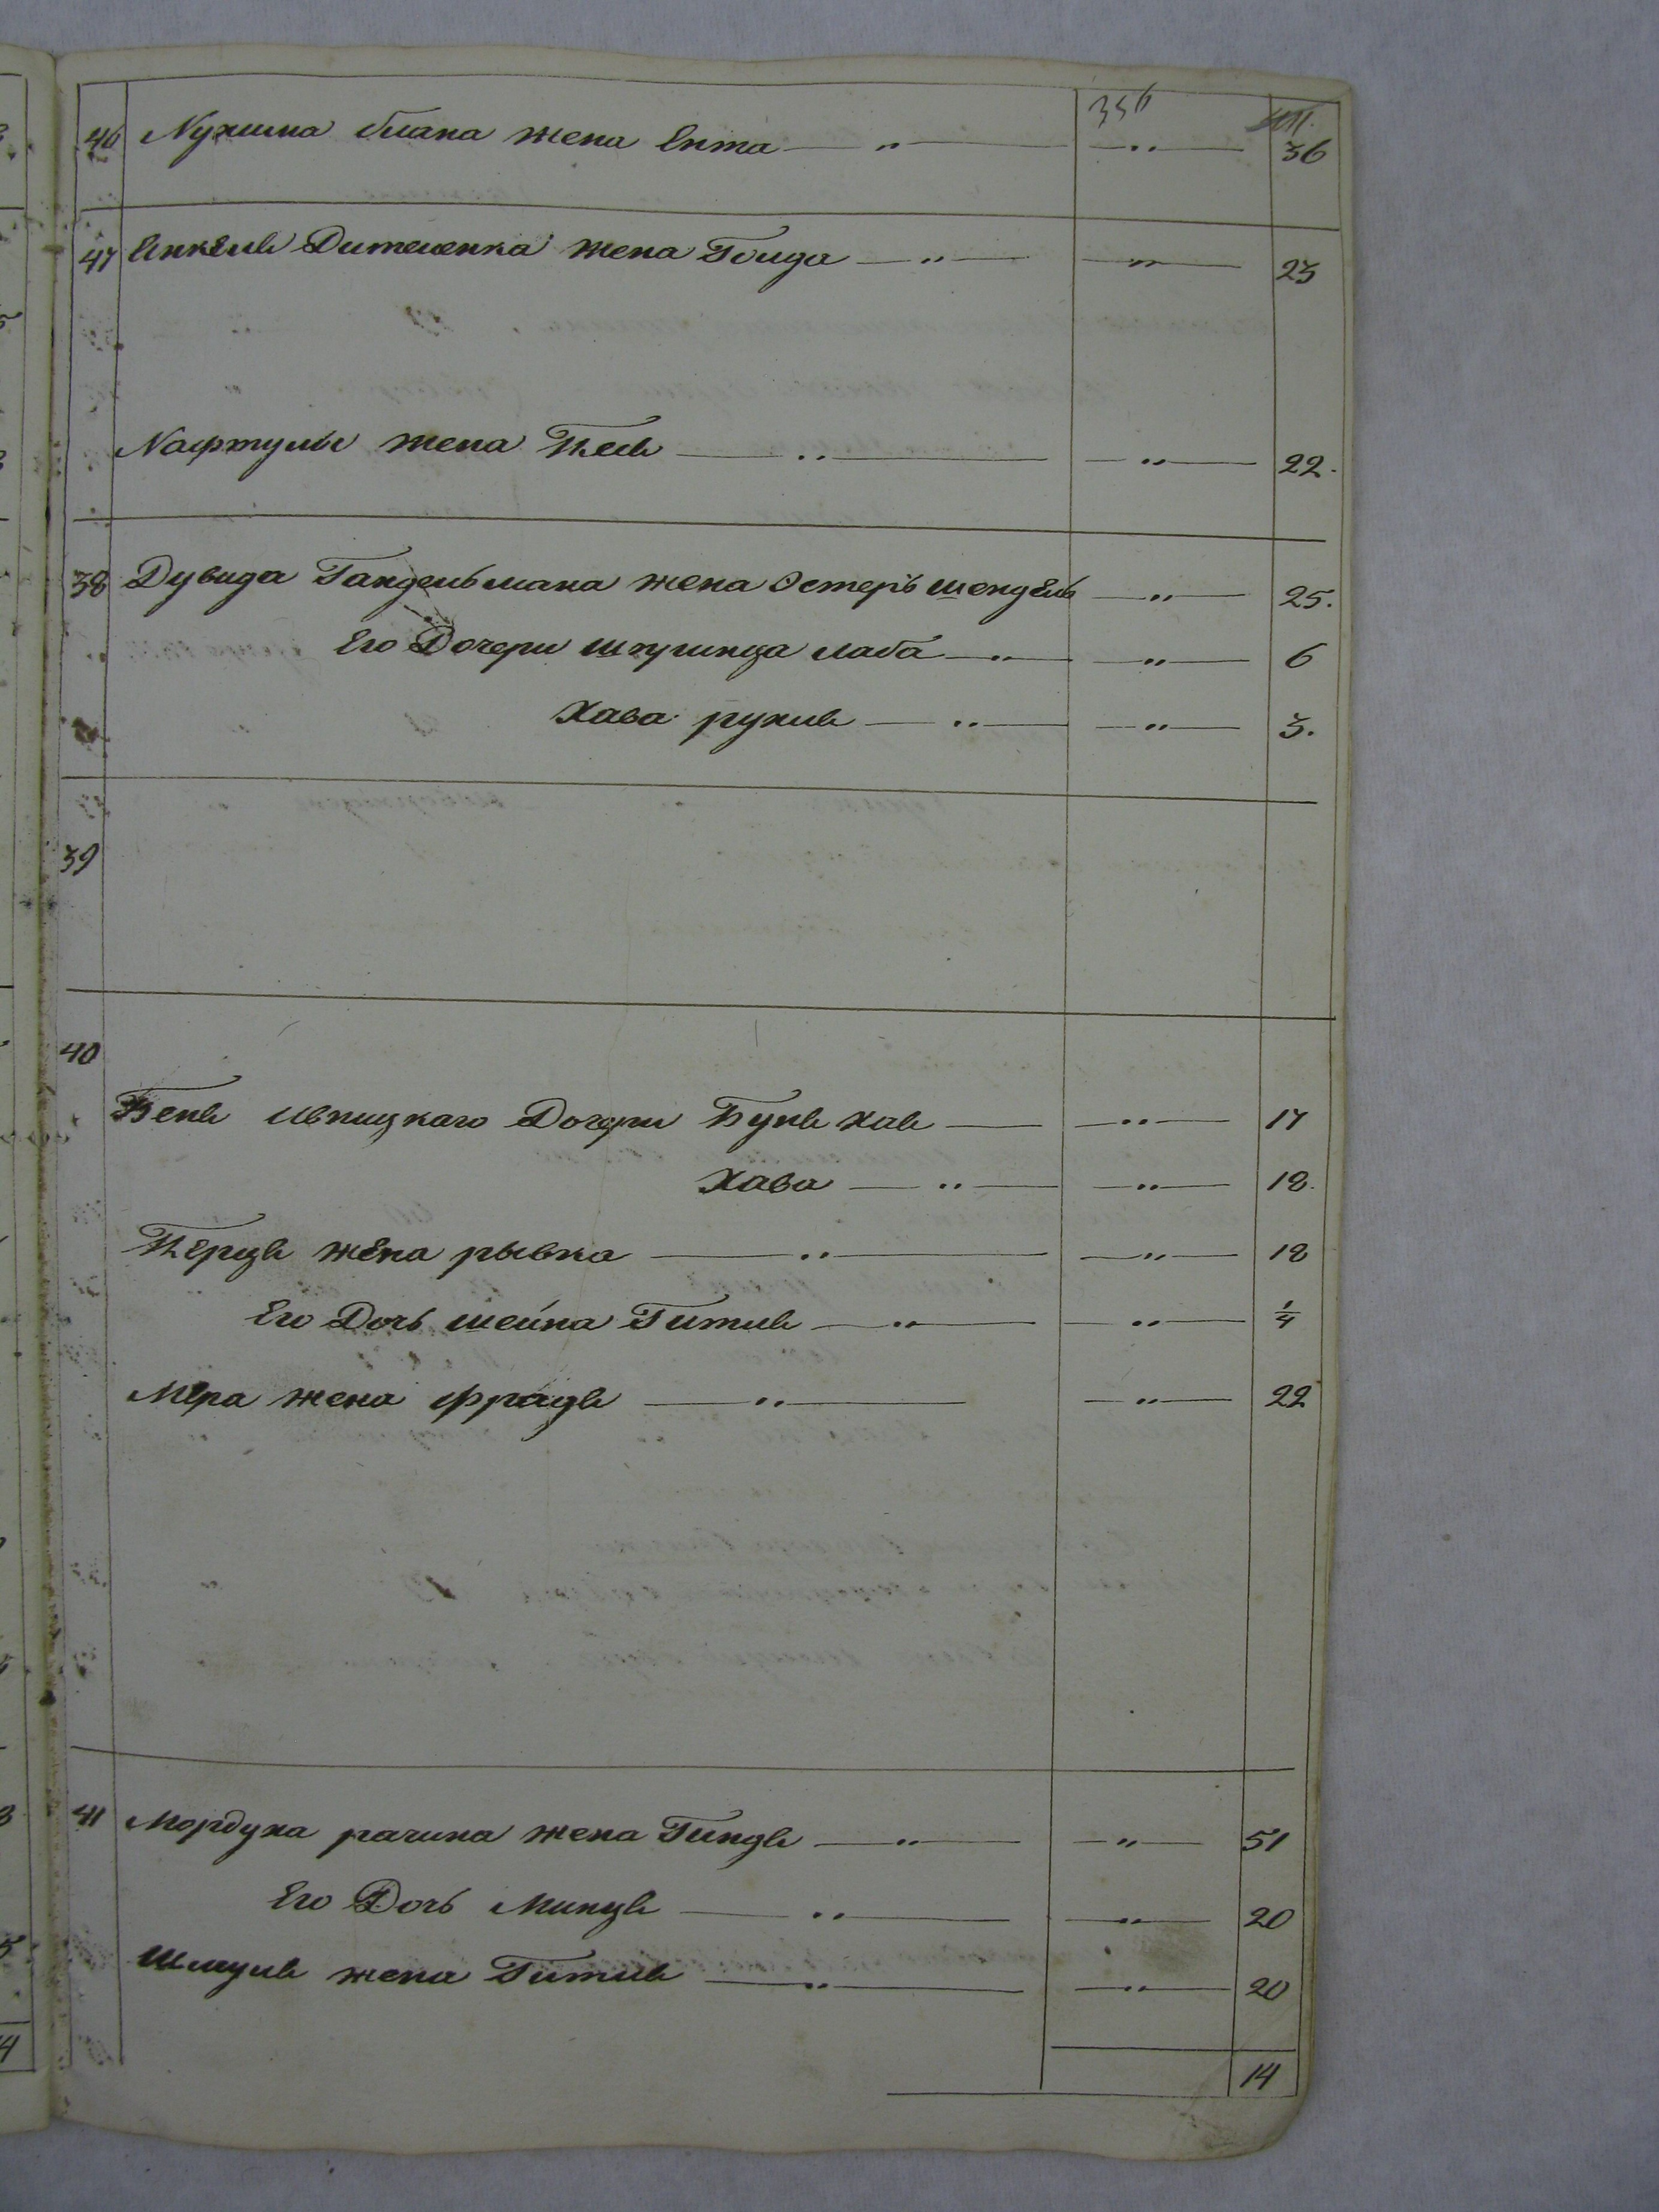 356
46 Нухима блана жена Ента — „ — — „ — 36
47 Янкель Дителенка жена Голда — „ — — „ — 23
Нафтулы жена Песь — „ — — „ — 22.
38 Дувида Гандельмана жена Эстеръ шендель — „ — 25.
Его Дочери шпринца лаба — „ — — „ — 6
Хава рухль — „ — — „ — 3.
39
40
Бень Дочери Бунь хае — — „ — 17
Хава — „ — — „ — 12.
Перць жена рывка — „ — — „ — 18
Его Дочь шейна Гитль — „ — — „ — 1/4
Мера жена Фрадь — „ — — „ — 22
41 Мордуха рачина жена Гиндь — „ — — „ — 51
Его Дочь Минць — „ — — „ — 20
Шмуль жена Гитль — „ — — „ — 20
14